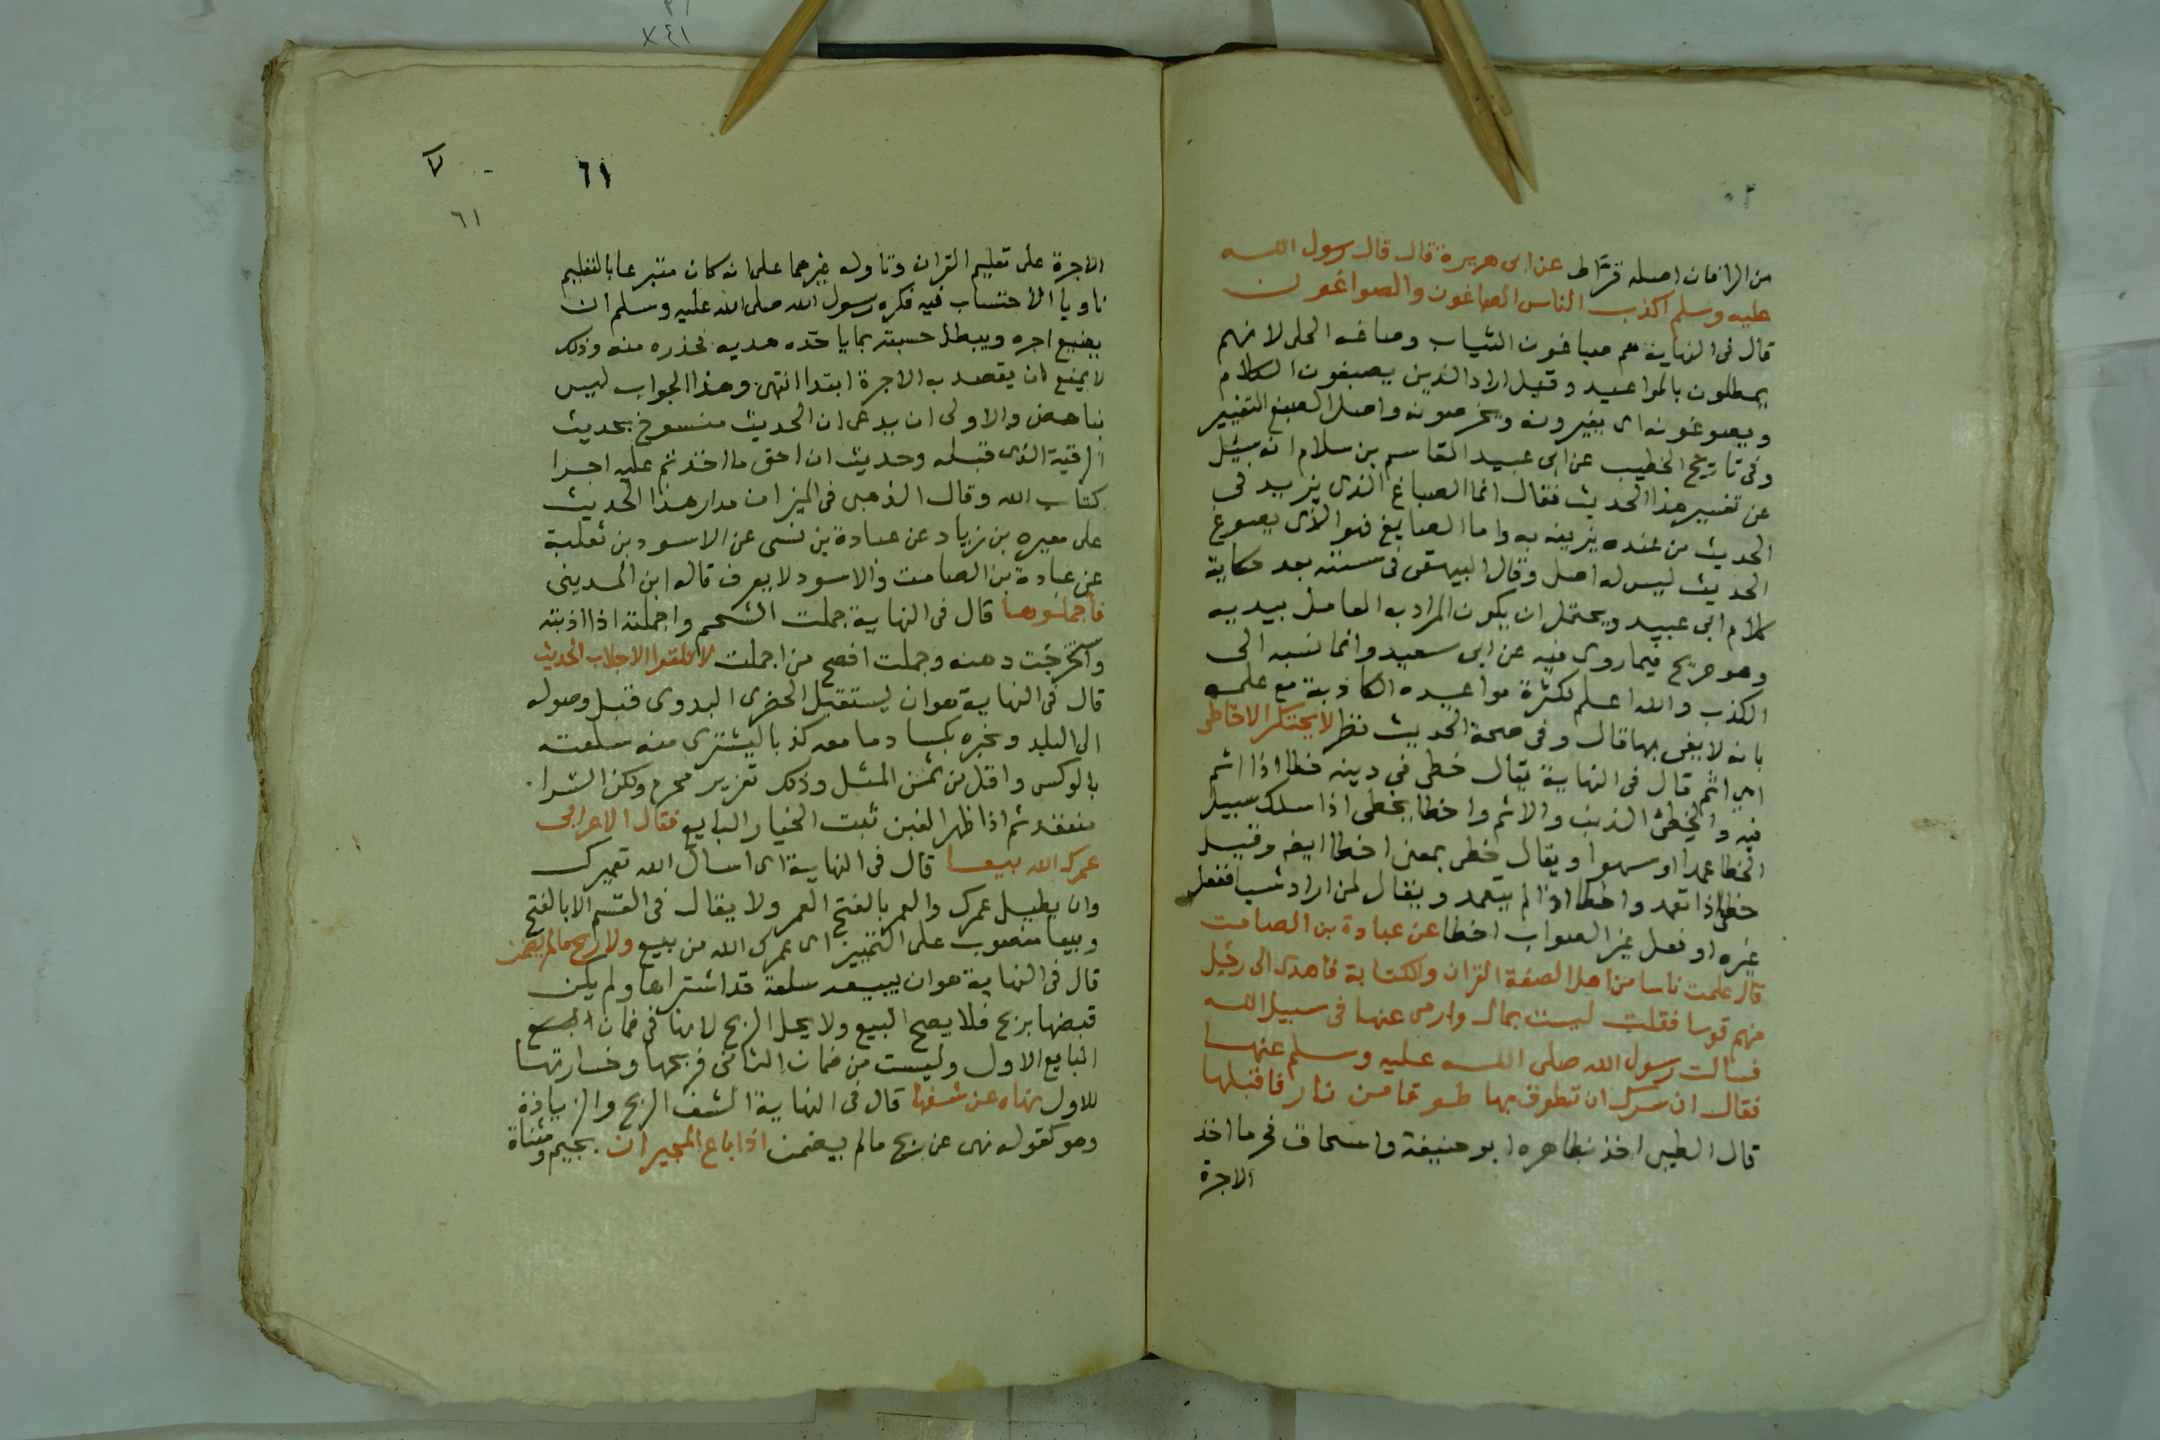 من الرافان اصله قرّاط عن ابى هريرة قال قال رسول الله
عليه وسلم اكذب الناس الصباغون والصواغون
قال فى النهاية هم صباغون الثياب وصاغه الحلى لانهم
يمطلون بالمواعيد وقيل اراد الذين يصبغون الكلام
ويصوغونه اى يغيرونه ويخرصونه واصل الصبغ التغيير
وفى تاريخ الخطيب عن ابى عبيد القاسم بن سلام انه سئل
عن تفسير هذا الحديث فقال انما الصباغ الذى يزيد فى
الحديث من عنده يزينه به واما الصايغ فهو الذى يصوغ
الحديث ليس له اصل وقال البيهقى فى سننه بعد حكاية
كلام ابى عبيد ويحتمل ان يكون المراد به العامل بيديه
وهو صريح فيما روى فيه عن ابى سعيد وانما نسبه الى
الكذب والله اعلم لكثرة مواعيده الكاذبة مع علمه
بانه لا يفى بها قال وفى صحة الحديث نظر لا يحتكر الا خاطى
اى اثم قال فى النهاية يقال خطى فى دينه خطا اذا اثم
فيه والخطئ الذنب والاثم واخطا يخطى اذا سلك سبيل
الخطا عمدا او سهوا ويقال خطى بمعنى اخطا ايضا وقيل
خطى اذا تعمد واخطا اذا لم يتعمد ويقال لمن اراد شيا ففعل
غيره او فعل غير الصواب اخطا عن عبادة بن الصامت
قال علمت ناسا من اهل الصفة القران والكتابة فاهدى الى رجل
منهم قوسا فقلت ليست بمال وارمى عنها فى سبيل الله
فسالت رسول الله صلى الله عليه وسلم عنها
فقال ان سرك ان تطوق بها طوقا من نار فاقبلها
قال الطيبى اخذ بظاهره ابو حنيفة واسحاق فحرما اخذ
الاجرة
٦١
٦١
الاجرة على تعليم القران وتاوله غيرهما على انه كان متبرعا بالتعليم
ناويا الاحتساب فيه فكره رسول الله صلى الله عليه وسلم ان
يضيع اجره ويبطل حسبته بما ياخذه هديه فحذره منه وذلك
لا يمنع ان يقصد به الاجرة ابتدا انتهى وهذا الجواب ليس
بناهض والاولى ان يدعى ان الحديث منسوخ بحديث
الرقية الذى قبله وحديث ان احق ما اخذتم عليه اجرا
كتاب الله وقال الذهبى فى الميزان مدار هذا الحديث
على مغيره بن زياد عن عبادة بن نسى عن الاسود بن ثعلبة
عن عبادة بن الصامت والاسود لا يعرف قاله ابن المدينى
فاجملوها قال فى النهاية جملت الشحم واجملته اذا اذبته
واستخرجت دهنه وجملت افصح من اجملت لا تلقوا الاجلاب الحديث
قال فى النهاية هو ان يستقبل الحضرى البدوى قبل وصوله
الى البلد ويخبره بكساد ما معه كذبا ليشترى منه سلعته
بالوكس واقل من ثمن المثل وذلك تغرير محرم ولكن الشرا
منعقد ثم اذا ظهر الغبن ثبت الخيار للبايع فقال الاعرابى
عمرك الله بيعا قال فى النهاية اى اسال الله تعميرك
وان يطيل عمرك والعمر بالفتح العمر ولا يقال فى القسم الا بالفتح
وبيعا منصوب على التمييز اى عمرك الله من بيع ولا ربح ما لم يضمن
قال فى النهاية هو ان يبيعه سلعة قد اشتراها ولم يكن
قبضها بربح فلا يصح البيع ولا يحل الربح لانها فى ضمان
البايع الاول وليست من ضمان الثانى فربحها وخسارتها
للاول نهاه عن شفها قال فى النهاية الشف الربح والزيادة
وهو كقوله نهى عن ربح ما لم يضمن اذا باع المجيران بجيم ومثناة